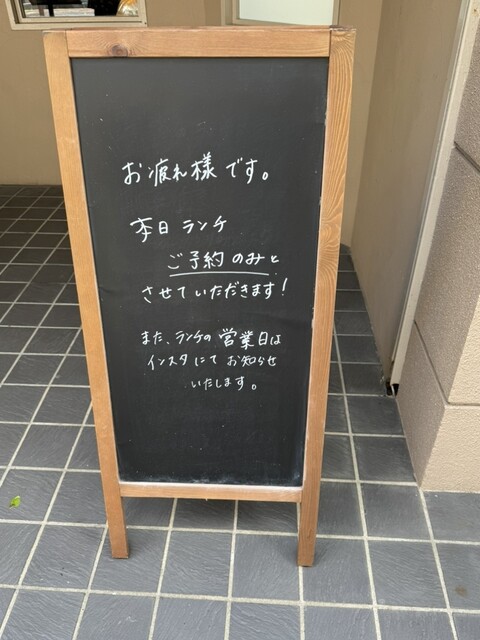 お疲れ様です。
本日ランチ
ご予約のみと
させていただきます!
また、ランチの営業日は
インスタにてお知らせ
いたします。